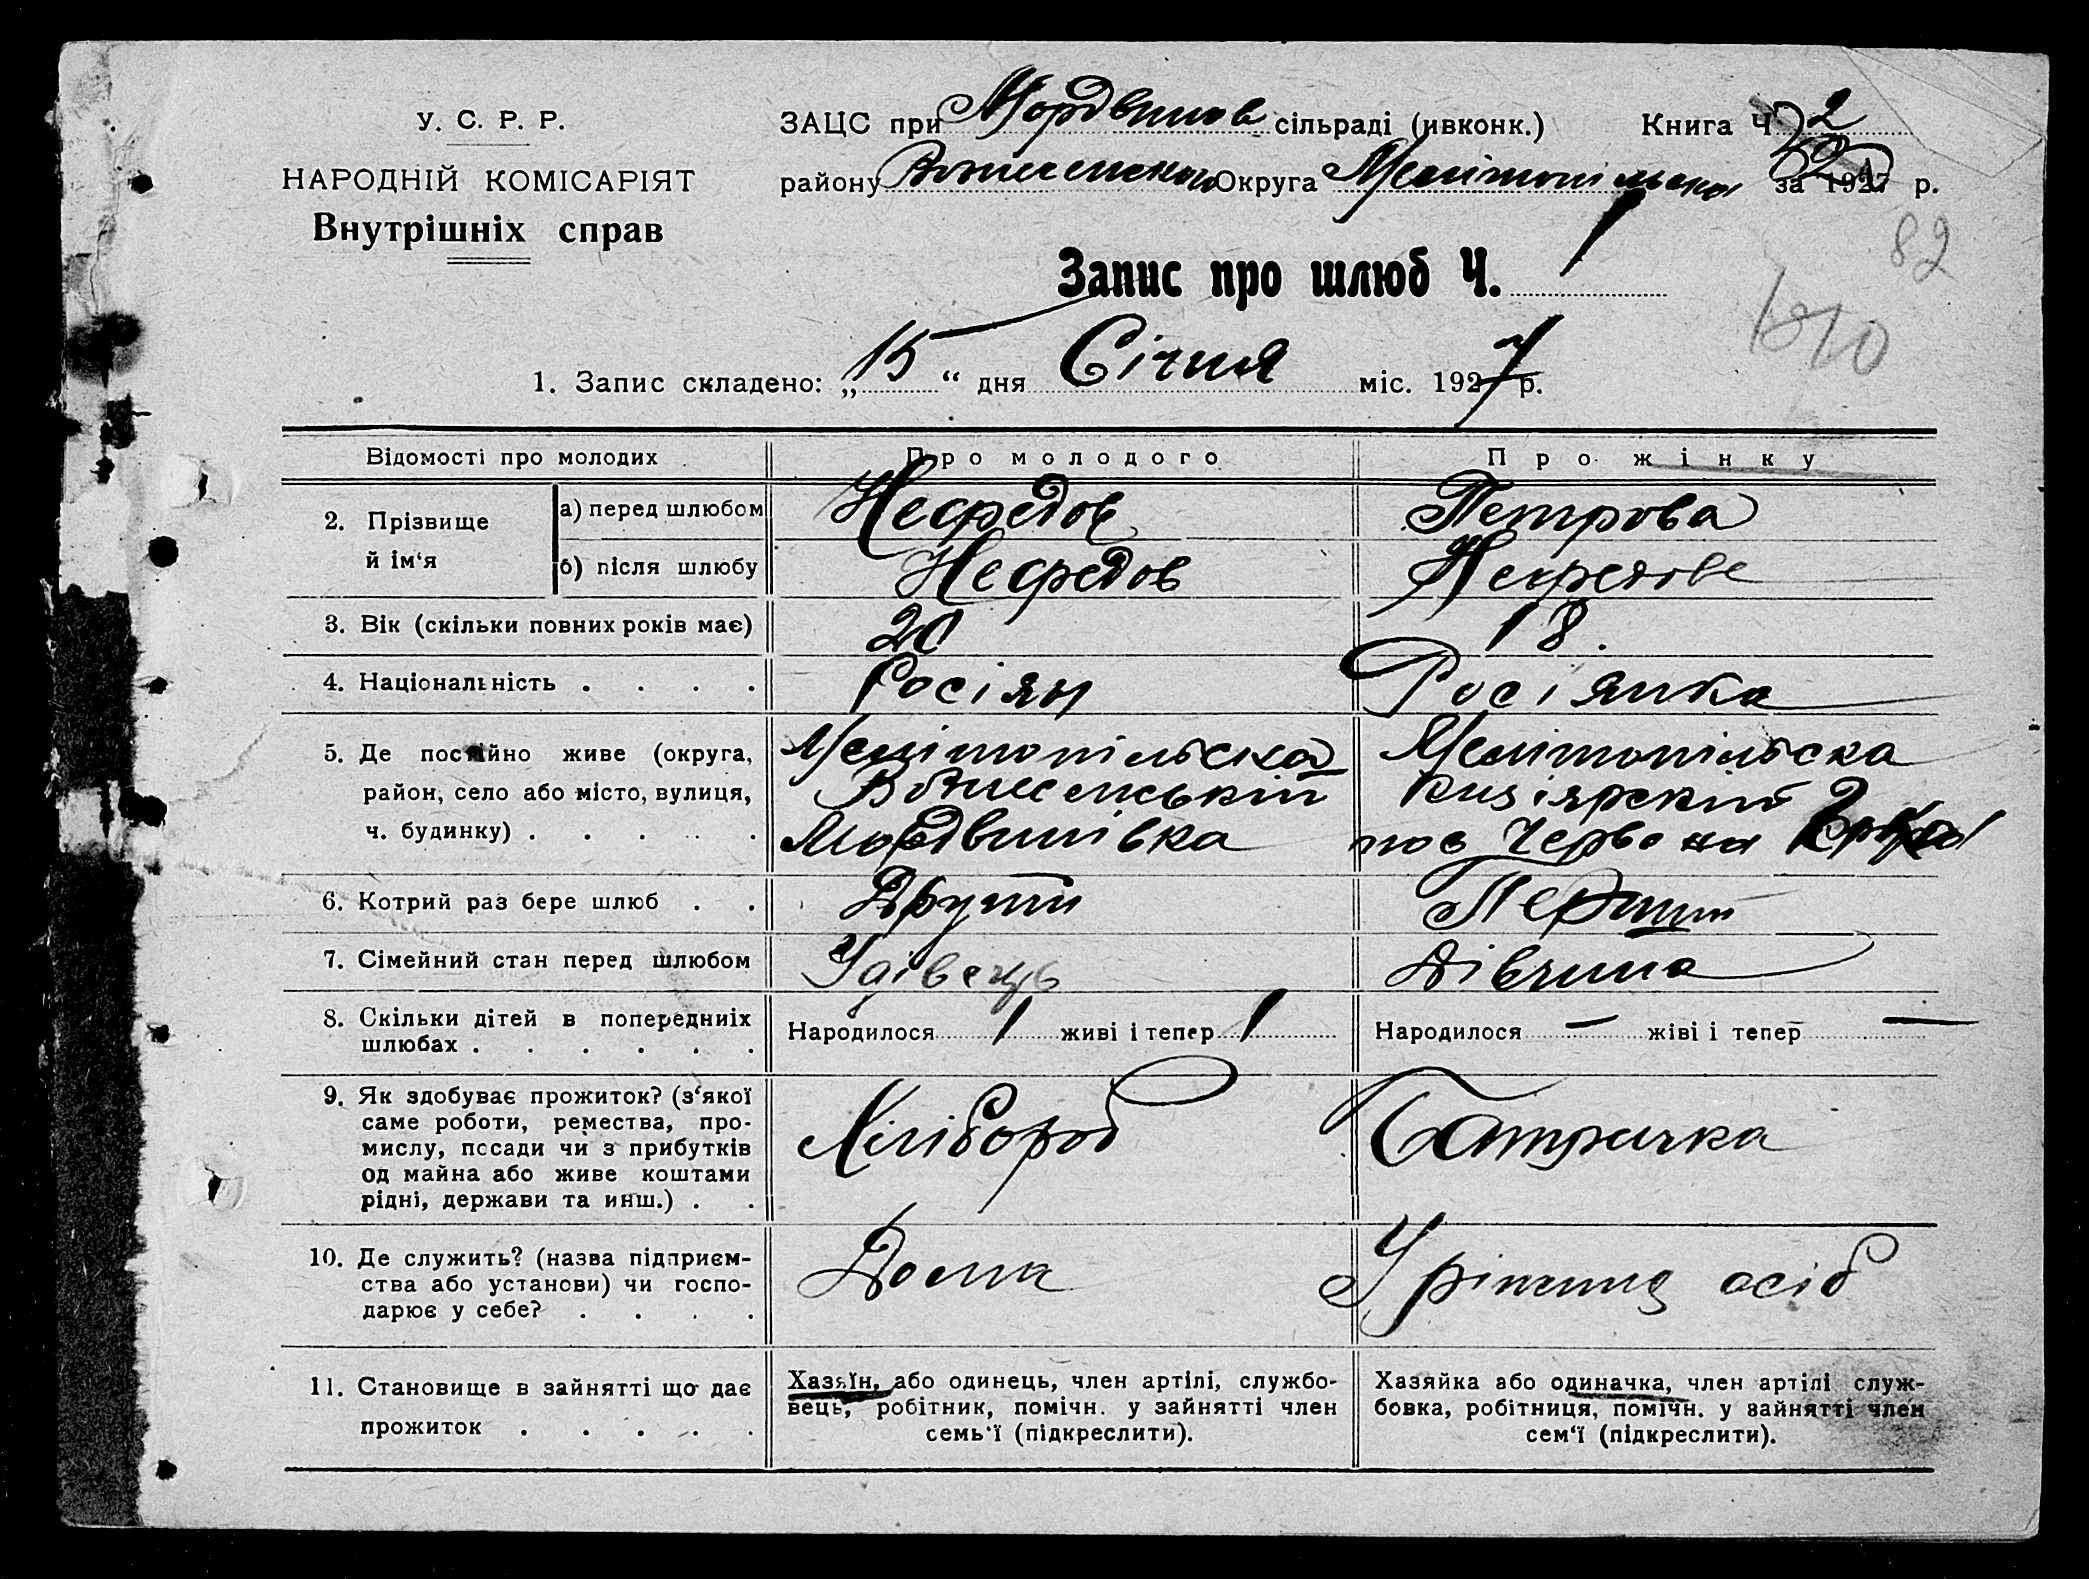 У. С. Р. Р.
НАРОДНІЙ КОМІСАРІЯТ
Внутрішніх справ
ЗАЦС при Мордвинов сільраді (ивконк.) Книга Ч 2
району Вознесенського Округа Мелітопільська за 1927 р.
82
Запис про шлюб Ч. 1
1. Запис складено: „15“ дня Січня міс. 1927 р.
Відомості про молодих
Про молодого
Про жінку
2. Прізвище й ім‘я
а) перед шлюбом
Нефедов
Петрова
б) після шлюбу
Нефедов
Нефедова
3. Вік (скільки повних років має)
20
18.
4. Національність . . . .
Росіян
Росіянка
5. Де постійно живе (округа,
район, село або місто, вулиця,
ч. будинку) . . . . .
Мелітопільска
Вознесенський
Мордвинівка
Мелітопільска
Кизіярский
пос Червона
6. Котрий раз бере шлюб . .
Другий
Перший
7. Сімейний стан перед шлюбом
Удівець
Дівчина
8. Скільки дітей в попередниіх
шлюбах . . . . . .
Народилося 1 живі і тепер 1
Народилося — жіві і тепер —
9. Як здобуває прожиток? (з‘якої
саме роботи, ремества, про-
мислу, посади чи з прибутків
од майна або живе коштами
рідні, держави та инш.) . .
Хлібороб
Батрачка
10. Де служить? (назва підприєм-
ства або установи) чи госпо-
дарює у себе? . . . .
Дома
У ріжних осіб
11. Становище в зайнятті що дає
прожиток . . . . .
Хазяїн, або одинець, член артілі, службо-
вець, робітник, помічн. у зайнятті член
семь‘ї (підкреслити).
Хазяйка або одиначка, член артілі служ-
бовка, робітниця, помічн. у зайнятті член
сем‘ї (підкреслити).